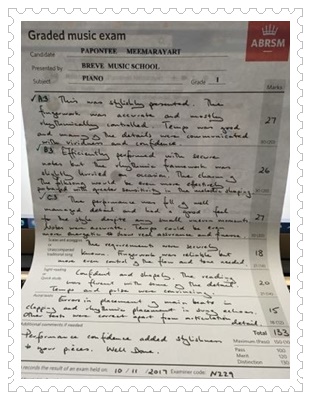 Graded music exam
ABRSM
Candidate PAPONTEE MEEMARAYART
Presented by BREVE MUSIC SCHOOL
Subject PIANO Grade 1
Marks
A3 This was stylishly presented. The
fingerwork was accurate and mostly
rhythmically controlled. Tempo was good
and the details were communicated
with vividness and confidence.
27
B3 Efficiently performed with secure
notes but the rhythmic framework was
slightly hurried on occasion. The charming
phrasing would be even more effectively
with greater sensitivity in the melodic shaping.
26
C3 This performance was full of well
managed detail and had a good feel
to the style despite any small
Notes were accurate. Tempo could be even
more energetic to boost real and
27
Scales and arpeggios
The requirements were securely
known. Fingerwork was reliable but
more even control of the flow and tone needed
18
Sight-reading
Confident and shapely. The reading
was fluent with some of the detail.
Tempo and pulse were convincing.
20
Aural tests
Errors in placement of main beats in
clapping and rhythmic placement in echoes.
Other tests were correct apart from articulation
detail.
15
Additional comments if needed
Total 133
Performance confidence added stylishness
to your pieces. Well Done.
Maximum (Pass) 150 (100)
Pass 100
Merit 120
Distinction 130
records the result of an exam held on 10/11/2017 Examiner code N229